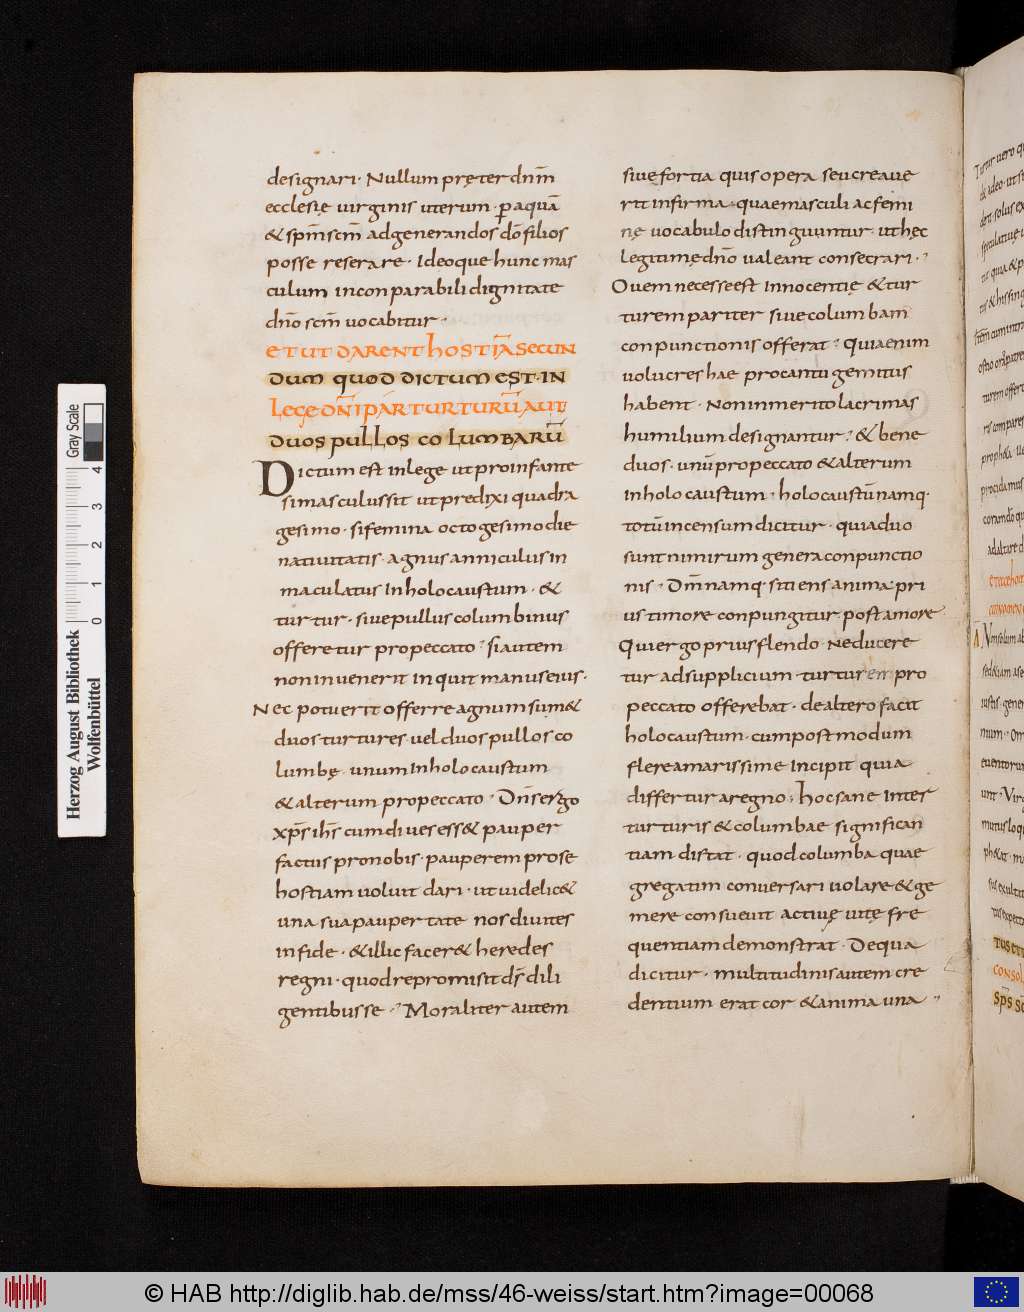 designari · Nullum pręter dnm̄
ecclesię virginis uterum · p aquā
& spm̄ scm̄ ad generandos dō filios
posse reserare · Ideoque hunc mas
culum inconparabili dignitate
dn̄o scm̄ vocabitur ·
ET UT DARENT HOSTIĀ SECUN
DUM QUOD DICTUM EST · IN
LEGE DN̄I PAR TURTURŪ AUT
DUOS PULLOS COLUMBARŪ
Dictum est in lege ut pro infante
si masculus sit ut predixi quadra
gesimo · si femina octogesimo die
nativitatis · agnus anniculus in
maculatus in holocaustum · &
turtur · sive pullus columbinus
offeretur pro peccato · si autem
non invenerit inquit manus eius ·
Nec potuerit offerre agnum sum&
duos turtures vel duos pullos co
lumbę · unum in holocaustum
& alterum pro peccato · Dn̄s ergo
xp̄s ih̄s cum dives ess& pauper
factus pro nobis · pauperem pro se
hostiam voluit dari · ut videlic&
una sua paupertate nos divites
in fide · & illic facer& heredes
regni · quod repromisit dс̄ dili
gentibus se · Moraliter autem
sive fortia quis opera seu creave
rit infirma · quae masculi ac femi
nę vocabulo distinguuntur · ut hęc
legitimę dn̄o valeant consecrari ·
Ovem necesse est innocentię & tur
turem pariter sive columbam
conpunctionis offerat · Quia enim
volucres hae pro cantu gemitus
habent · Non inmerito lacrimas
humilium designantur · & bene
duos · unū pro peccato & alterum
in holocaustum · holocaustū namq·
totū incensum dicitur · quia duo
sunt nimirum genera conpunctio
nis · Dm̄ namq· sitiens anima pri
us timore conpungitur post amore
Qui ergo prius flendo · ne ducere
tur ad supplicium · turturem pro
peccato offerebat · de altero facit
holocaustum · cum postmodum
flere amarissime incipit quia
differtur a regno · hoc sane inter
turturis & columbae significan
tiam distat · quod columba quae
gregatim conversari volare & ge
mere consuevit activę vitę fre
quentiam demonstrat · De qua
dicitur · multitudinis autem cre
dentium erat cor & anima una ·
Herzog August Bibliothek
Wolfenbüttel
0 1 2 3 4
Gray Scale
© HAB http://diglib.hab.de/mss/46-weiss/start.htm?image=00068